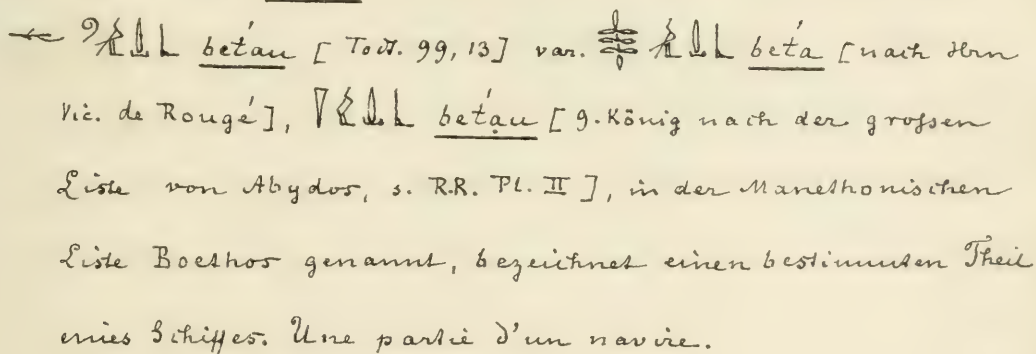 beťau [Todt. 99, 13] var. beťa [nach Hrn
Vic. de Rougé], beťau [9. König nach der grossen
Liste von Abydos, s. R.R. Pl. II], in der Manethonischen
Liste Boethos genannt, bezeichnet einen bestimmten Theil
eines Schiffes. Une partie d'un navire.